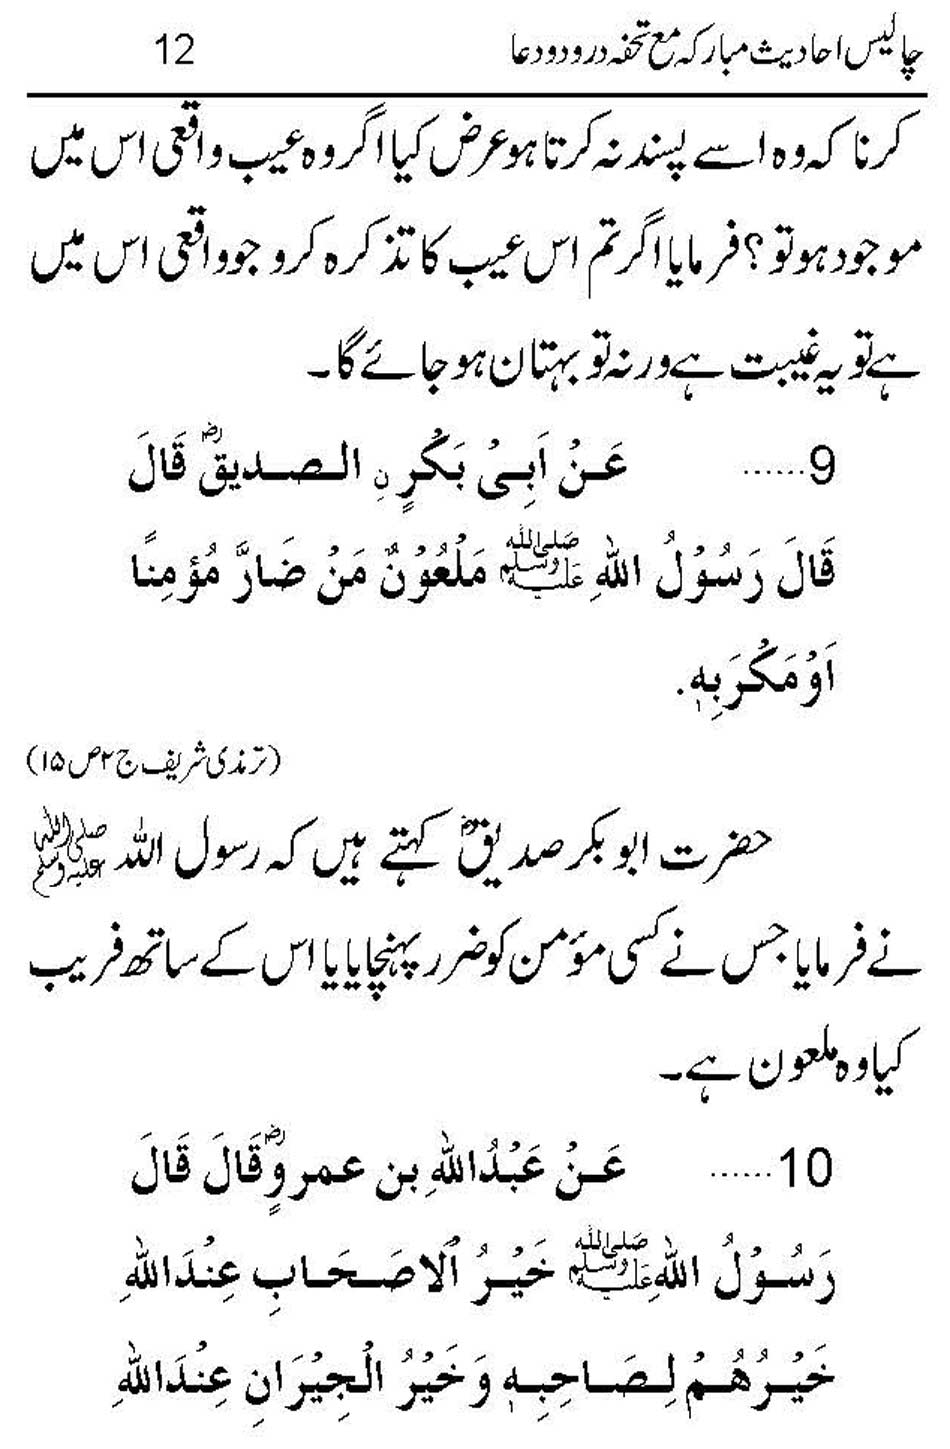 چالیس احادیث مبارکہ مع تحفہ درود و دعا 12
کرنا کہ وہ اسے پسند نہ کرتا ہو عرض کیا اگر وہ عیب واقعی اس میں
موجود ہو تو؟ فرمایا اگر تم اس عیب کا تذکرہ کرو جو واقعی اس میں
ہے تو یہ غیبت ہے ورنہ تو بہتان ہو جائے گا۔
9...... عَنْ اَبِیْ بَکْرٍ نِ الصدیقؓ قَالَ
قَالَ رَسُوْلُ اللهِ ﷺ مَلْعُوْنٌ مَنْ ضَارَّ مُؤمِنًا
اَوْ مَکْرَبِهٖ.
(ترمذی شریف ج ۲ ص ۱۵)
حضرت ابوبکر صدیقؓ کہتے ہیں کہ رسول اللہ ﷺ
نے فرمایا جس نے کسی مؤمن کو ضرر پہنچایا یا اس کے ساتھ فریب
کیا وہ ملعون ہے۔
10...... عَنْ عَبْدُاللهِ بن عمروٍؓ قَالَ قَالَ
رَسُوْلُ اللهِ ﷺ خَیْرُ الْاصَحَابِ عِنْدَاللهِ
خَیْرُهُمْ لِصَاحِبِهٖ وَخَیْرُ الْجِیْرَانِ عِنْدَاللهِ